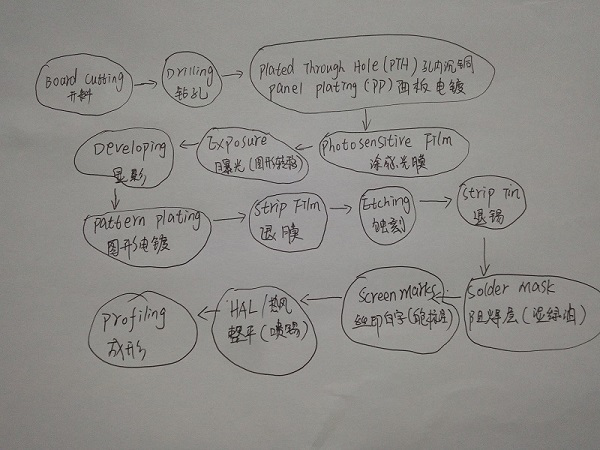 Board Cutting
开料
Drilling
钻孔
Plated Through Hole (PTH) 孔内沉铜
panel plating (PP) 面板电镀
Photosensitive Film
涂感光膜
Exposure
曝光(图形转移)
Developing
显影
Pattern plating
图形电镀
Strip Film
退膜
Etching
蚀刻
Strip Tin
退锡
Solder mask
阻焊层(湿绿油)
Screenmarks
丝印白字
HAL/热风
整平(喷锡)
Profiling
成形